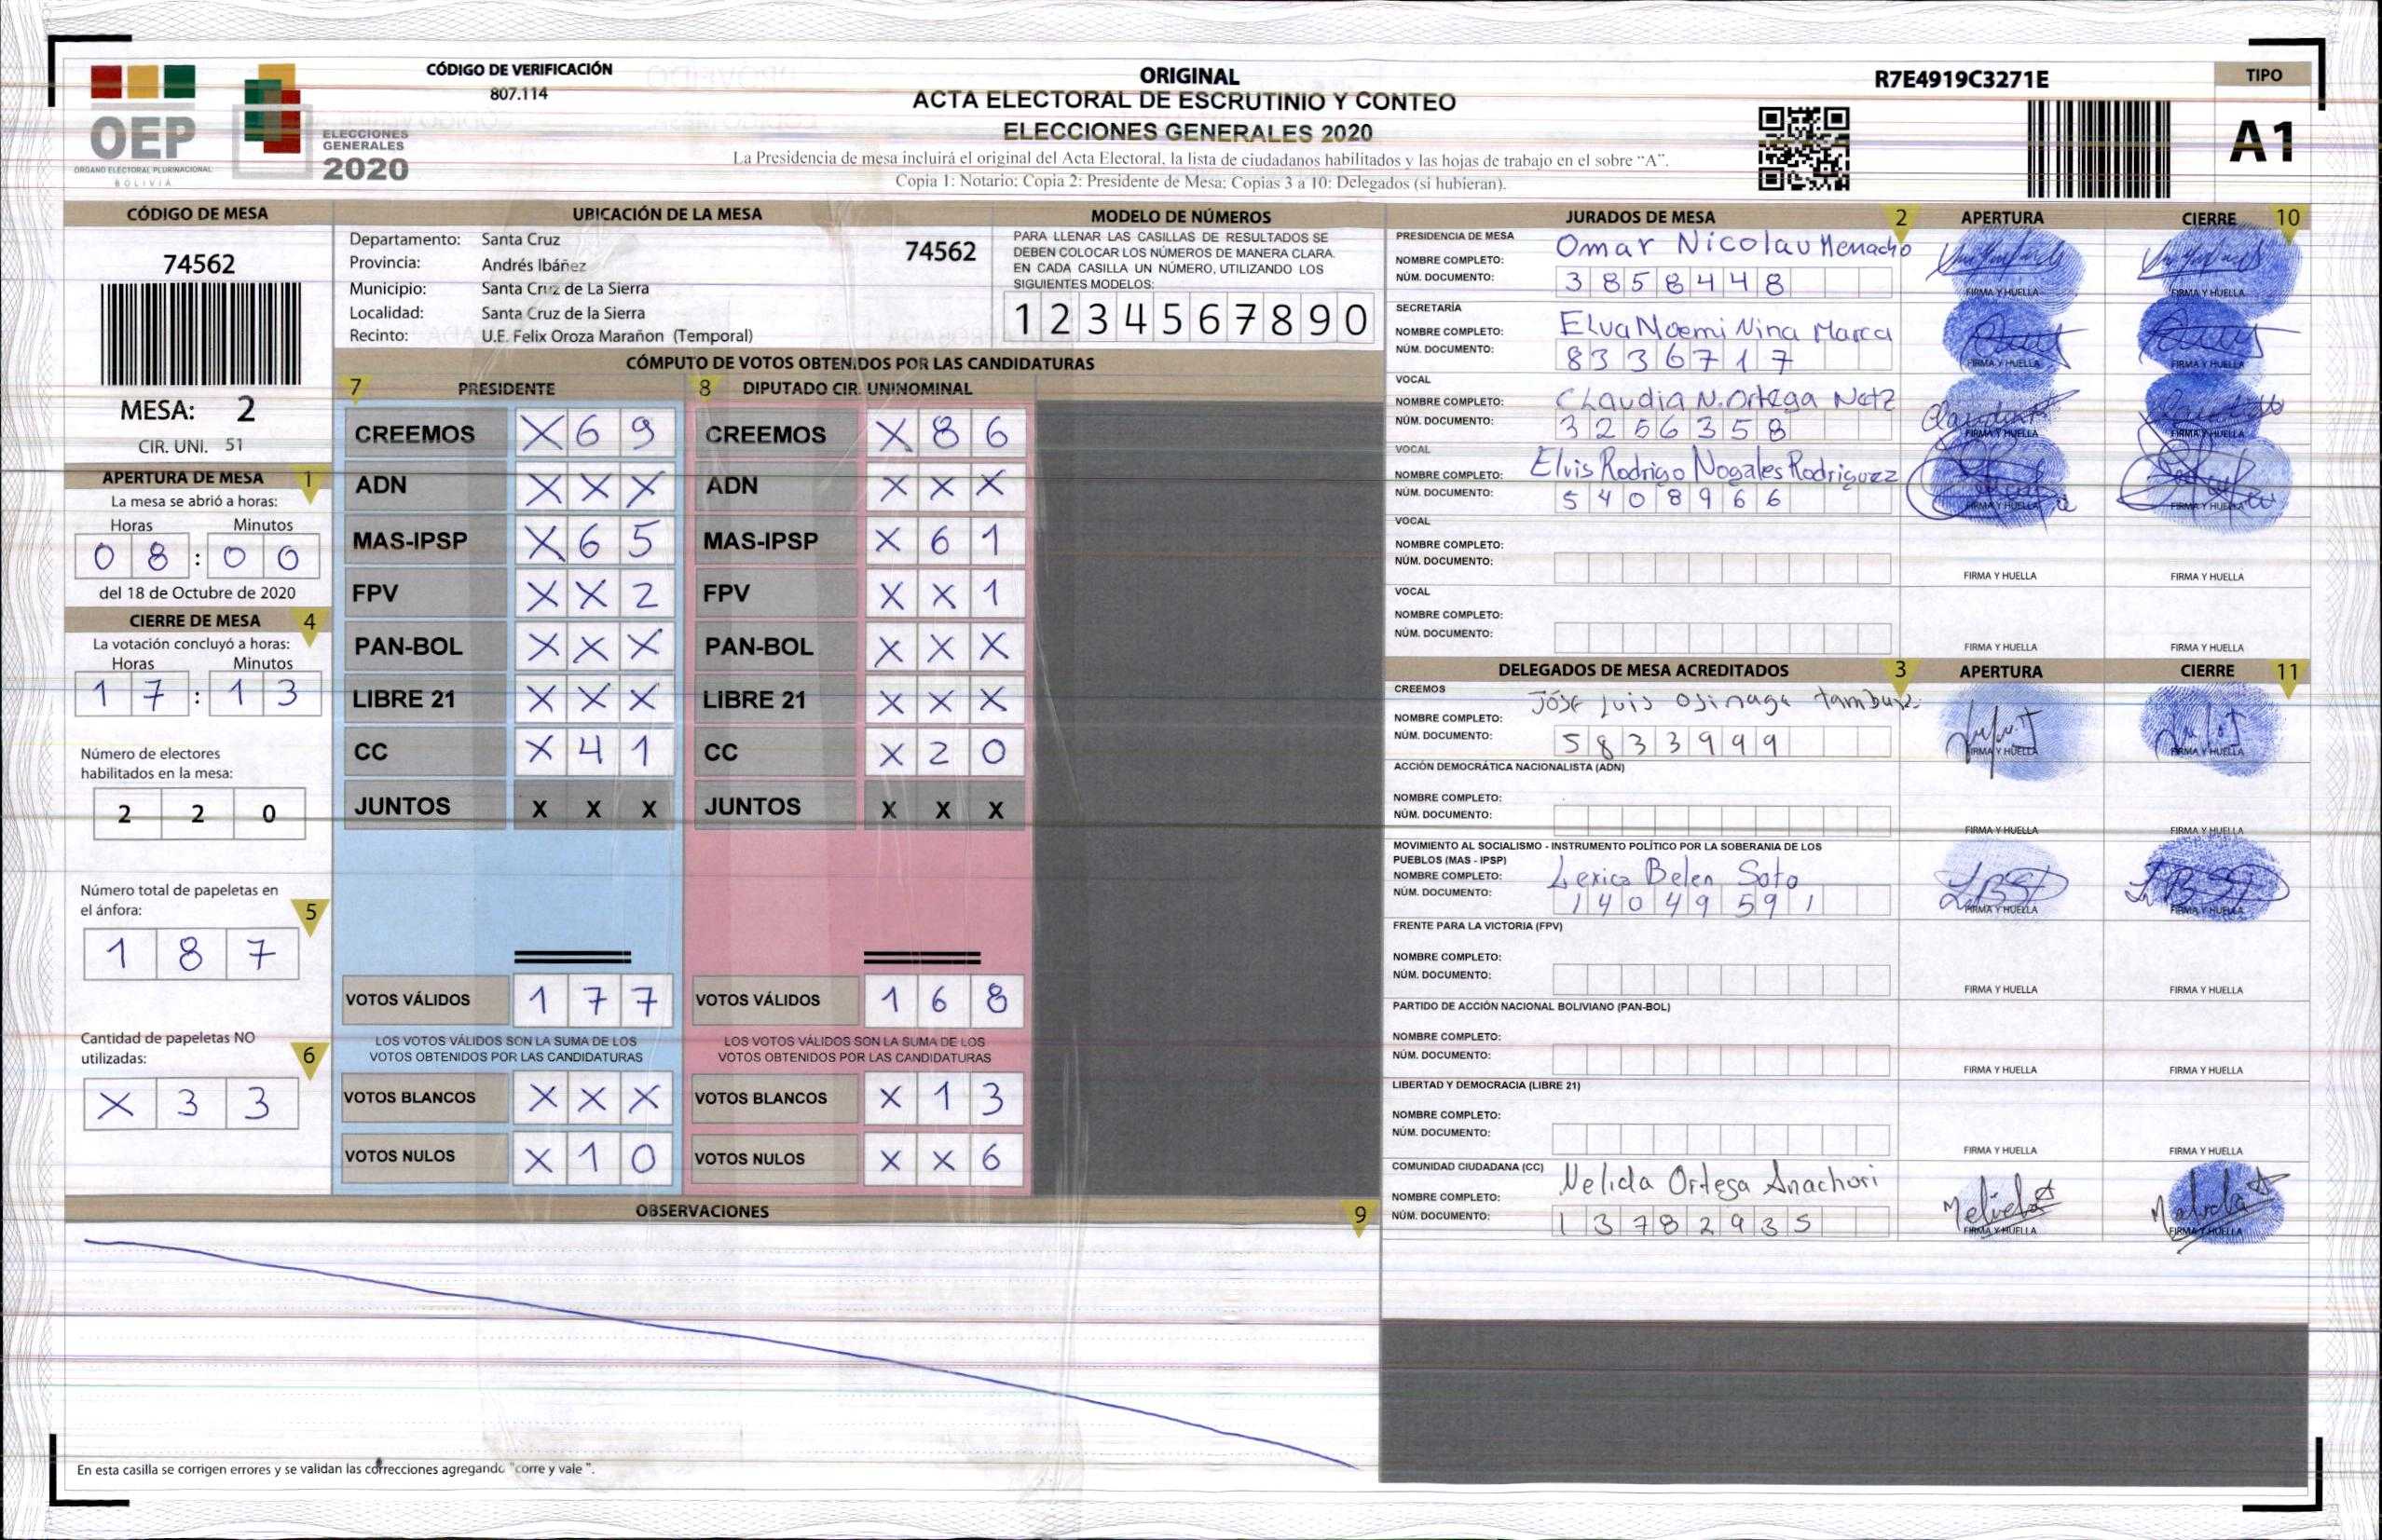 CÓDIGO DE VERIFICACIÓN
807.114
ORIGINAL
ACTA ELECTORAL DE ESCRUTINIO Y CONTEO
ELECCIONES GENERALES 2020
La Presidencia de mesa incluirá el original del Acta Electoral, la lista de ciudadanos habilitados y las hojas de trabajo en el sobre “A”.
Copia 1: Notario; Copia 2: Presidente de Mesa; Copias 3 a 10: Delegados (si hubieran).
R7E4919C3271E
TIPO
A1
OEP
ÓRGANO ELECTORAL PLURINACIONAL
BOLIVIA
ELECCIONES
GENERALES
2020
CÓDIGO DE MESA
74562
MESA: 2
CIR. UNI. 51
APERTURA DE MESA 1
La mesa se abrió a horas:
Horas Minutos
0 8 : 0 0
del 18 de Octubre de 2020
CIERRE DE MESA 4
La votación concluyó a horas:
Horas Minutos
1 7 : 1 3
Número de electores
habilitados en la mesa:
2 2 0
Número total de papeletas en
el ánfora: 5
1 8 7
Cantidad de papeletas NO
utilizadas: 6
X 3 3
UBICACIÓN DE LA MESA
Departamento: Santa Cruz
Provincia: Andrés Ibáñez
Municipio: Santa Cruz de La Sierra
Localidad: Santa Cruz de la Sierra
Recinto: U.E. Felix Oroza Marañon (Temporal)
74562
MODELO DE NÚMEROS
PARA LLENAR LAS CASILLAS DE RESULTADOS SE
DEBEN COLOCAR LOS NÚMEROS DE MANERA CLARA.
EN CADA CASILLA UN NÚMERO, UTILIZANDO LOS
SIGUIENTES MODELOS:
1 2 3 4 5 6 7 8 9 0
CÓMPUTO DE VOTOS OBTENIDOS POR LAS CANDIDATURAS
7 PRESIDENTE 8 DIPUTADO CIR. UNINOMINAL
CREEMOS X 6 9 CREEMOS X 8 6
ADN X X X ADN X X X
MAS-IPSP X 6 5 MAS-IPSP X 6 1
FPV X X 2 FPV X X 1
PAN-BOL X X X PAN-BOL X X X
LIBRE 21 X X X LIBRE 21 X X X
CC X 4 1 CC X 2 0
JUNTOS X X X JUNTOS X X X
VOTOS VÁLIDOS 1 7 7 VOTOS VÁLIDOS 1 6 8
LOS VOTOS VÁLIDOS SON LA SUMA DE LOS LOS VOTOS VÁLIDOS SON LA SUMA DE LOS
VOTOS OBTENIDOS POR LAS CANDIDATURAS VOTOS OBTENIDOS POR LAS CANDIDATURAS
VOTOS BLANCOS X X X VOTOS BLANCOS X 1 3
VOTOS NULOS X 1 0 VOTOS NULOS X X 6
OBSERVACIONES 9
En esta casilla se corrigen errores y se validan las correcciones agregando "corre y vale ".
JURADOS DE MESA 2 APERTURA CIERRE 10
PRESIDENCIA DE MESA
NOMBRE COMPLETO: Omar Nicolau Menacho
NÚM. DOCUMENTO: 3 8 5 8 4 4 8
FIRMA Y HUELLA FIRMA Y HUELLA
SECRETARÍA
NOMBRE COMPLETO: Elva Noemi Nina Marca
NÚM. DOCUMENTO: 8 3 3 6 7 1 7
FIRMA Y HUELLA FIRMA Y HUELLA
VOCAL
NOMBRE COMPLETO: Claudia N. Ortega
NÚM. DOCUMENTO: 3 2 5 6 3 5 8
FIRMA Y HUELLA FIRMA Y HUELLA
VOCAL
NOMBRE COMPLETO: Elvis Rodrigo Nogales Rodriguez
NÚM. DOCUMENTO: 5 4 0 8 9 6 6
FIRMA Y HUELLA FIRMA Y HUELLA
VOCAL
NOMBRE COMPLETO:
NÚM. DOCUMENTO:
FIRMA Y HUELLA FIRMA Y HUELLA
VOCAL
NOMBRE COMPLETO:
NÚM. DOCUMENTO:
FIRMA Y HUELLA FIRMA Y HUELLA
DELEGADOS DE MESA ACREDITADOS 3 APERTURA CIERRE 11
CREEMOS
NOMBRE COMPLETO: José Luis Osinaga
NÚM. DOCUMENTO: 5 8 3 3 9 9 9
FIRMA Y HUELLA FIRMA Y HUELLA
ACCIÓN DEMOCRÁTICA NACIONALISTA (ADN)
NOMBRE COMPLETO:
NÚM. DOCUMENTO:
FIRMA Y HUELLA FIRMA Y HUELLA
MOVIMIENTO AL SOCIALISMO - INSTRUMENTO POLÍTICO POR LA SOBERANIA DE LOS
PUEBLOS (MAS - IPSP)
NOMBRE COMPLETO: Lexica Belen Soto
NÚM. DOCUMENTO: 1 4 0 4 9 5 9 1
FIRMA Y HUELLA FIRMA Y HUELLA
FRENTE PARA LA VICTORIA (FPV)
NOMBRE COMPLETO:
NÚM. DOCUMENTO:
FIRMA Y HUELLA FIRMA Y HUELLA
PARTIDO DE ACCIÓN NACIONAL BOLIVIANO (PAN-BOL)
NOMBRE COMPLETO:
NÚM. DOCUMENTO:
FIRMA Y HUELLA FIRMA Y HUELLA
LIBERTAD Y DEMOCRACIA (LIBRE 21)
NOMBRE COMPLETO:
NÚM. DOCUMENTO:
FIRMA Y HUELLA FIRMA Y HUELLA
COMUNIDAD CIUDADANA (CC)
NOMBRE COMPLETO: Nelida Ortega Anachori
NÚM. DOCUMENTO: 1 3 7 8 2 9 3 5
FIRMA Y HUELLA FIRMA Y HUELLA